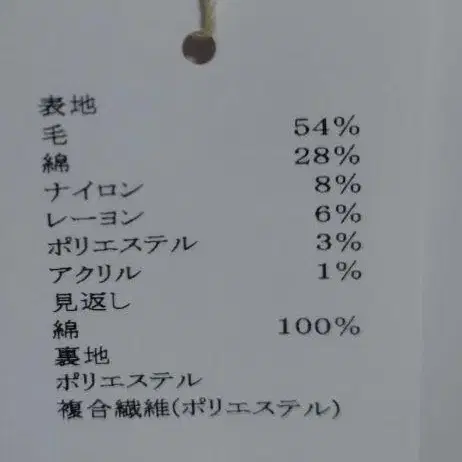 表地
毛 54%
綿 28%
ナイロン 8%
レーヨン 6%
ポリエステル 3%
アクリル 1%
見返し
綿 100%
裏地
ポリエステル
複合繊維(ポリエステル)